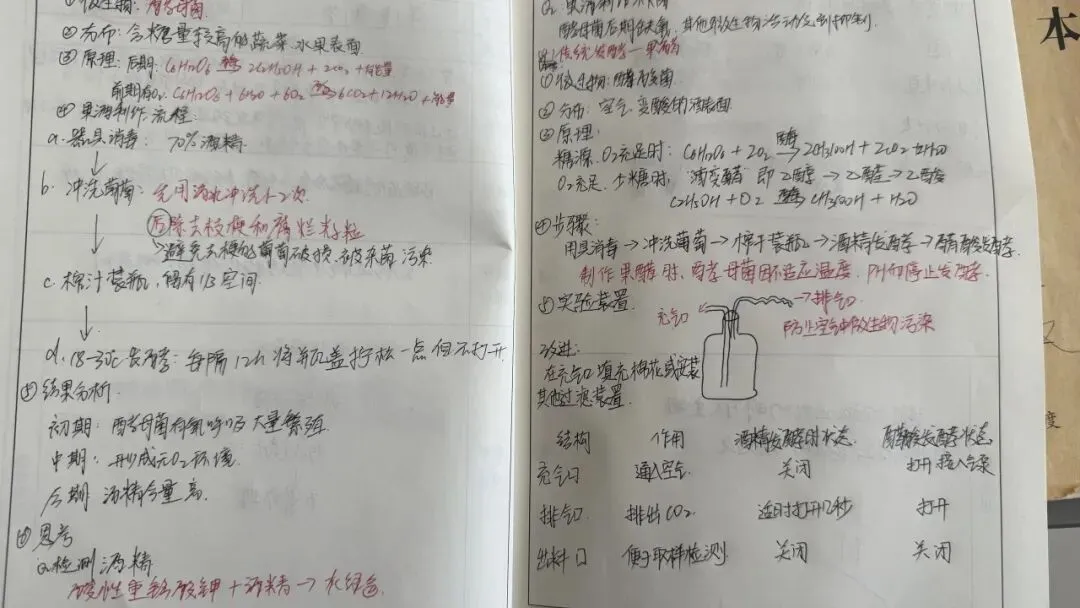 ①微生物：酵母菌
②分布：含糖量较高的蔬菜、水果表面
③原理：后期：C6H12O6 酶→ 2C2H5OH + 2CO2 + 能量
前期有O2：C6H12O6 + 6H2O + 6O2 酶→ 6CO2 + 12H2O + 能量
④果酒制作流程
a. 器具消毒：70%酒精
↓
b. 冲洗葡萄：先用清水冲洗1~2次
后除去枝梗和腐烂籽粒
→避免去梗时葡萄破损，被杂菌污染
↓
c. 榨汁装瓶，留有1/3空间
↓
d. 18-30℃发酵：每隔12h将瓶盖拧松一点但不打开
⑤结果分析
初期：酵母菌有氧呼吸大量繁殖
中期：形成无O2环境
后期 酒精含量高
⑥思考
Q1检测酒精
酸性重铬酸钾 + 酒精 → 灰绿色
酵母菌后期缺氧，其他微生物活动受到抑制
传统发酵—果醋
①微生物：醋酸菌
②分布：空气、变酸的酒表面
③原理：
糖源、O2充足时：C6H12O6 + 2O2 酶→ 2CH3COOH + 2CO2 + 2H2O
O2充足、少糖时，“酒变醋”即乙醇→乙醛→乙酸
C2H5OH + O2 酶→ CH3COOH + H2O
④步骤：
用具消毒→冲洗葡萄→榨汁装瓶→酒精发酵→醋酸发酵
制作果醋时，酵母菌因不适应温度，所以停止发酵
⑤实验装置
充气口
→排气口
防止空气中微生物污染
改进：
在充气口填充棉花或安装
其他过滤装置
结构 作用 酒精发酵时状态 醋酸发酵状态
充气口 通入空气 关闭 打开 接入气泵
排气口 排出CO2 适时打开几秒 打开
出料口 便于取样检测 关闭 关闭
本
度